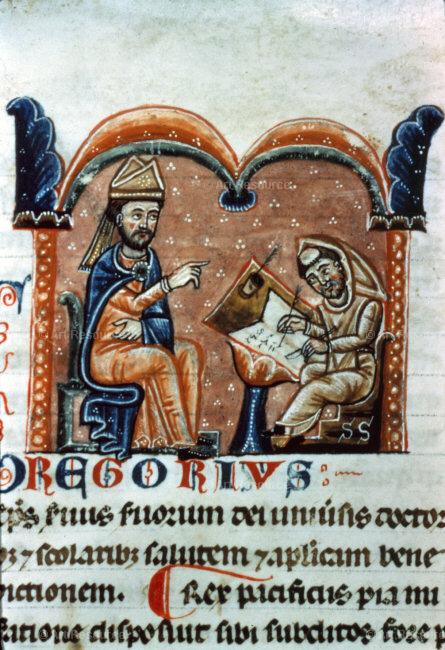 GREGORIVS
ep̄s s̄uus s̄uorum dei uniūsis doctor
ibꝫ ⁊ scolaribꝫ salutem ⁊ apl̄icam bene
dictionem. Rex pacificus pia mi
seratione disposuit sibi subditos fore p